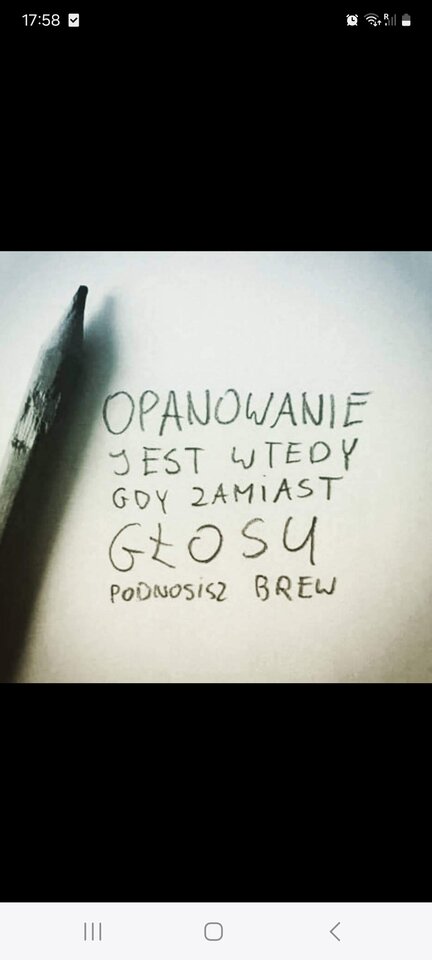 17:58
R
OPANOWANIE
JEST WTEDY
GDY ZAMIAST
GŁOSU
PODNOSISZ BREW